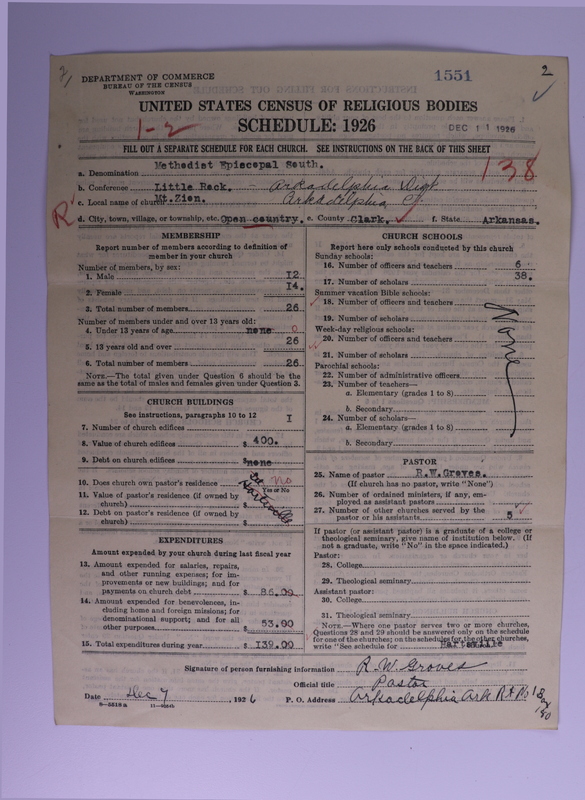 DEPARTMENT OF COMMERCE
BUREAU OF THE CENSUS
WASHINGTON
1551
2
UNITED STATES CENSUS OF RELIGIOUS BODIES
1-2
SCHEDULE: 1926
DEC 11 1926
FILL OUT A SEPARATE SCHEDULE FOR EACH CHURCH. SEE INSTRUCTIONS ON THE BACK OF THIS SHEET
138
a. Denomination Methodist Episcopal South.
b. Conference Little Rock. - Arkadelphia Dist
c. Local name of church Mt.Zion. Arkadelphia Ct.
R
d. City, town, village, or township, etc. Open country. e. County Clark. f. State Arkansas.
MEMBERSHIP
Report number of members according to definition of
member in your church
Number of members, by sex:
1. Male 12
2. Female 14.
3. Total number of members 26
Number of members under and over 13 years old:
4. Under 13 years of age none 0
5. 13 years old and over 26
6. Total number of members 26
NOTE.—The total given under Question 6 should be the
same as the total of males and females given under Question 3.
CHURCH BUILDINGS
See instructions, paragraphs 10 to 12
7. Number of church edifices I
8. Value of church edifices $ 400.
9. Debt on church edifices $ none
10. Does church own pastor's residence no
Yes or No
11. Value of pastor's residence (if owned by
church) $
12. Debt on pastor's residence (if owned by
church) $
EXPENDITURES
Amount expended by your church during last fiscal year
13. Amount expended for salaries, repairs,
and other running expenses; for im-
provements or new buildings; and for
payments on church debt $ 86.00
14. Amount expended for benevolences, in-
cluding home and foreign missions; for
denominational support; and for all
other purposes $ 53.00
15. Total expenditures during year $ 139.00
CHURCH SCHOOLS
Report here only schools conducted by this church
Sunday schools:
16. Number of officers and teachers 6
17. Number of scholars 38.
Summer vacation Bible schools:
18. Number of officers and teachers
19. Number of scholars
Week-day religious schools:
20. Number of officers and teachers
21. Number of scholars
Parochial schools:
22. Number of administrative officers
23. Number of teachers—
a. Elementary (grades 1 to 8)
b. Secondary
24. Number of scholars—
a. Elementary (grades 1 to 8)
b. Secondary
None
PASTOR
25. Name of pastor R.W.Groves.
(If church has no pastor, write "None")
26. Number of ordained ministers, if any, em-
ployed as assistant pastors
27. Number of other churches served by the
pastor or his assistants 5
If pastor (or assistant pastor) is a graduate of a college or
theological seminary, give name of institution below. (If
not a graduate, write "No" in the space indicated.)
Pastor:
28. College
29. Theological seminary
Assistant pastor:
30. College
31. Theological seminary
NOTE.—Where one pastor serves two or more churches,
Questions 28 and 29 should be answered only on the schedule
for one of the churches; on the schedules for the other churches,
write "See schedule for Hartsville
Signature of person furnishing information R. W. Groves
Official title Pastor
Date Dec 7, 1926 P. O. Address Arkadelphia Ark Rt No 1 Box
180
8-5518 a